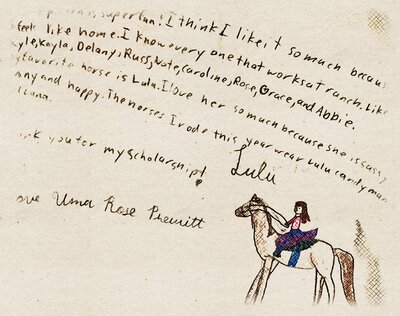 super fun! I think I like it so much becaus
feels like home. I know every one that works at ranch. Like
yle, Kayla, Delany, Russ, Nate, Caroline, Rose, Grace, and Abbie.
favorite horse is Lulu. I love her so much because she is sassy,
any and happy. The horses I rode this year wear Lulu candyman
Lulu
you for my Scholarsh.pt
ove Uma Rose Prewitt